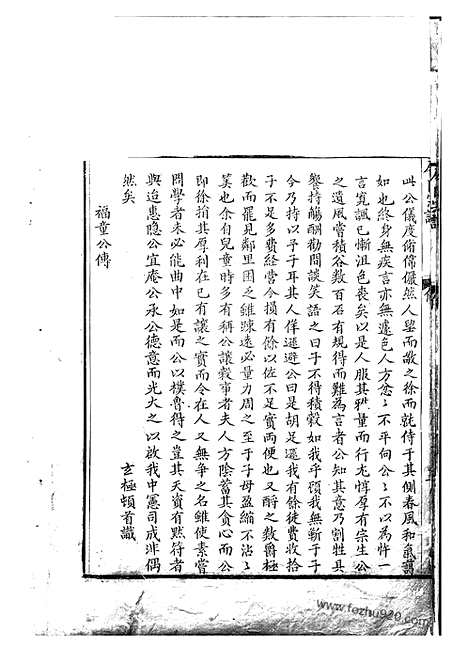 此公儀度脩偉儼然人望而敬之徐而就侍于其側春風和氣藹
如也終身無疾言亦無遽色人方忿忿不平伺公公不以為忤一
言寬諷已慚沮色喪矣以是人服其雅量而行尤惇厚有宗生公
之遺風嘗積谷數百石有規得而難為言者公知其意乃割牲具
饗持觴酬勸間談笑語之曰子不得積穀如我乎碩我無蘄于子
今乃持以予子耳其人佯遜避公曰是胡足遜我有餘徒費收拾
子不足多費經營今損有餘以佐不足實兩便也又酹之數爵極
歡而罷見鄰里困乏雖踈遠必量力周之至于子母盈縮不沾沾
筭也余自兒童時多有稱公讓穀事者夫人方陰蓄其貪心而公
即徐揣其厚利在已有讓之實而令彼有無爭之名雖使素嘗
問學者未必能曲中如是而公以樸魯得之豈其天資有默符者
與迨惠隐公宜庵公承公德意而光大之以啟我中憲司成非偶
然矣
玄極頓首識
福童公傳
www.fozhu920.com